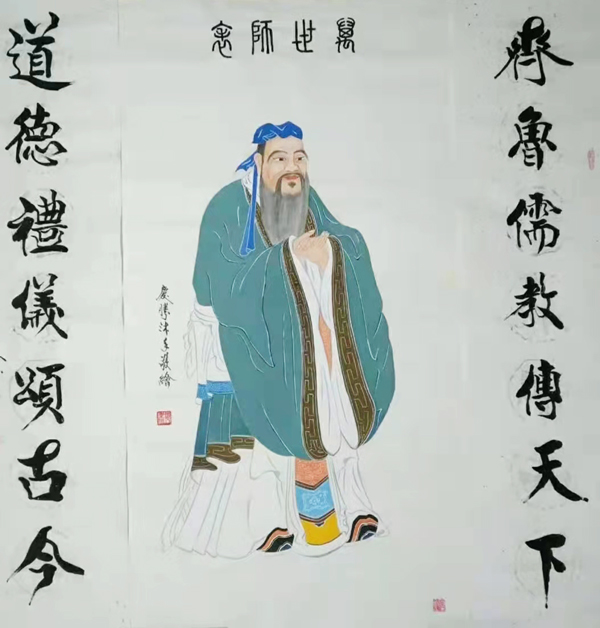 萬世師表
齊魯儒教傳天下
道德禮儀頌古今